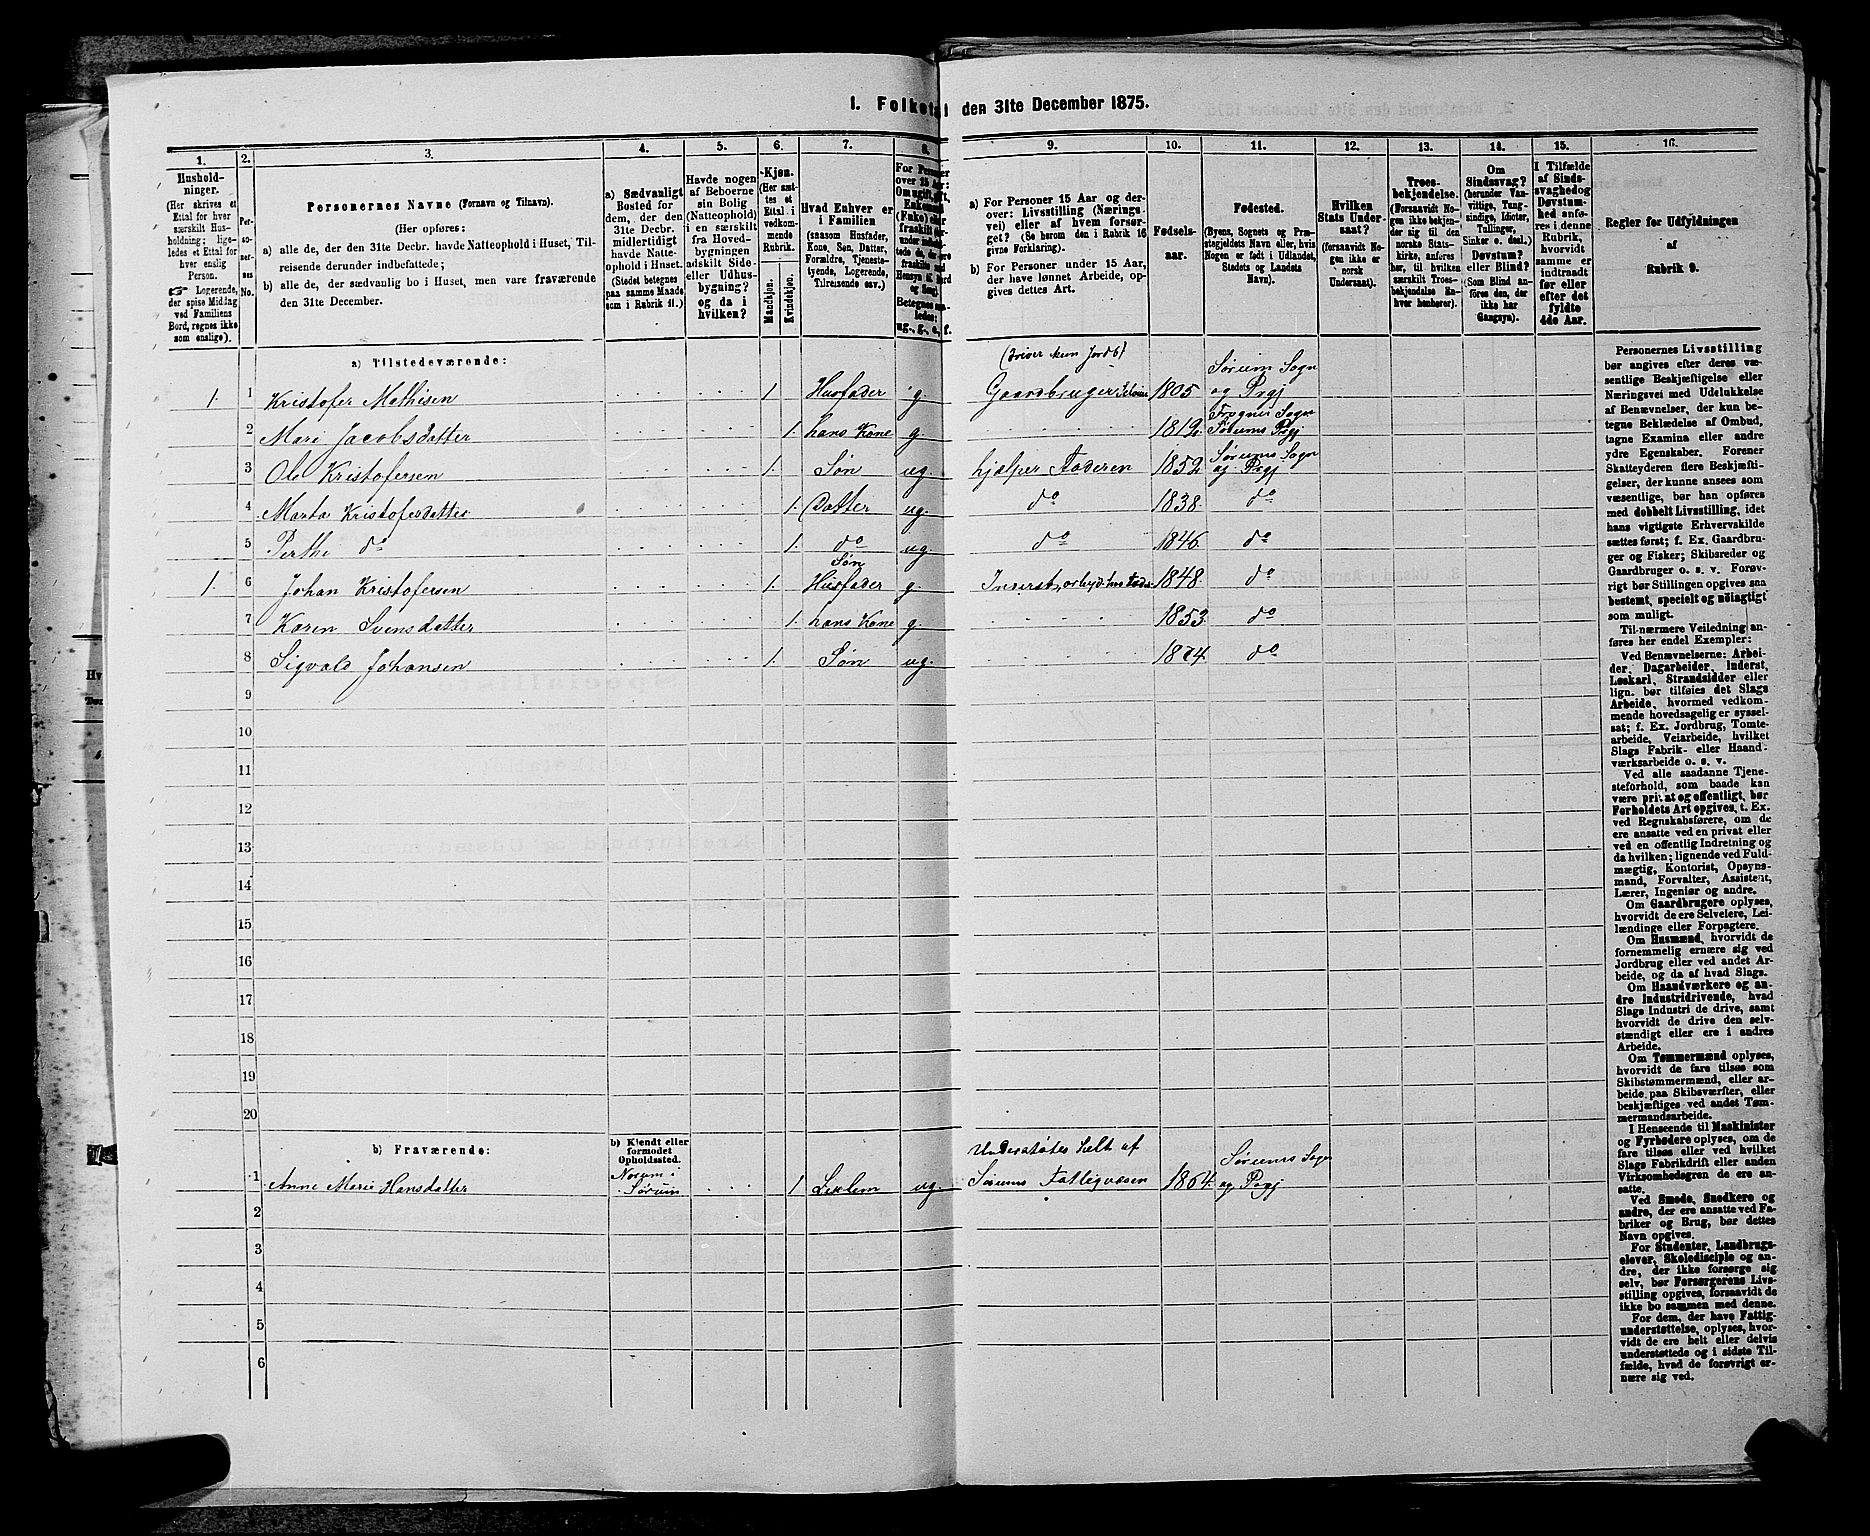 1. Folketal den 31te December 1875.
1. 2. 3. 4. 5. 6. 7. 8. 9. 10. 11. 12. 13. 14. 15. 16.
Husholdninger.
(Her skrives et
Ettal for hver
særskilt Husholdning;
ligeledes et Ettal for
hver enslig
Person.
☛ Logerende,
der spise Middag
ved Familiens
Bord, regnes ikke
som enslige).
Personernes No.
Personernes Navne (Fornavn og Tilnavn).
(Her opføres:
a) alle de, der den 31te Decbr. havde Natteophold i Huset, Tilreisende
derunder indbefattede;
b) alle de, der sædvanlig bo i Huset, men vare fraværende
den 31te December.
a) Sædvanligt
Bosted for
dem, der den
31te Decbr.
midlertidigt
havde Natteophold
i Huset.
(Stedet betegnes
paa samme Maade
som i Rubrik 11.)
Havde nogen
af Beboerne
sin Bolig
(Natteophold)
i en særskilt
fra Hovedbygningen
adskilt Sideeller
Udhusbygning?
og da i
hvilken?
Kjøn.
(Her sættes
et
Ettal i
vedkommende
Rubrik.
Mandkjøn.
Kvindekjøn.
Hvad Enhver er
i Familien
(saasom Husfader,
Kone, Søn, Datter,
Forældre, Tjenestetyende,
Logerende,
Tilreisende osv.)
For Personer
over 15 Aar:
Om ugift, gift,
Enkemand
(Enke) eller
fraskilt
Betegnes saaledes:
ug., g., e., f.
a) For Personer 15 Aar og derover:
Livsstilling (Næringsvei)
eller af hvem forsørget?
(Se herom den i Rubrik 16
givne Forklaring).
b) For Personer under 15 Aar,
der have lønnet Arbeide, opgives
dettes Art.
Fødselsaar.
Fødested.
(Byens, Sognets og Præstegjeldets
Navn eller, hvis
Nogen er født i Udlandet,
Stedets og Landets
Navn).
Hvilken
Stats Undersaat?
(forsaavidt Nogen
ikke er
norsk
Undersaat).
Troesbekjendelse.
(Forsaavidt Nogen
ikke bekjender
sig til den
norske Statskirke,
anføres
her, til hvilken
særskilt Troesbekjendelse
Enhver
henhører).
Om
Sindssvag?
(herunder Vanvittige,
Tungsindige,
Idioter,
Tullinger,
Sinker o. desl.)
Døvstum?
eller Blind?
(Som Blind anføres
den, der
ikke har
Gangsyn).
I Tilfælde
af Sindssvaghed og
Døvstumhed
anføres
i denne
Rubrik,
hvorvidt
samme er
indtraadt
før eller
efter det
fyldte
4de Aar.
Regler for Udfyldningen
af
Rubrik 9.
a) Tilstedeværende:
(driver kun Jordb)
1. 1 Kristofer Mathisen 1 Husfader g. Gaardbruger Selveier 1805 Sørum Sogn og Prgj
2 Mari Jacobsdatter 1. hans Kone g. 1819. Frogner Sogn Sørums Prgj
3 Ole Kristofersen 1. Søn ug. hjælper Faderen 1852 Sørums Sogn og Prgj
4 Marta Kristofersdatter 1. Datter ug. do 1838. do
5 Perthe do 1. do ug. do 1846. do
Søn
1. 6 Johan Kristofersen 1. Husfader g. Inderst, 1848. do
7 Karen Svensdatter 1. hans Kone g. 1853. do
8 Sigvald Johansen 1. Søn ug. 1874. do
9
10
11
12
13
14
15
16
17
18
19
20
b) Fraværende:
b) Kjendt eller
formodet
Opholdssted.
Understøttes helt af
1 Anne Marie Hansdatter i Sørum 1 ug. Sørums Fattigvæsen 1864. Sørums Sogn og Prgj
2
3
4
5
6
Personernes Livsstilling
bør angives efter deres væsentlige
Beskjæftigelse eller
Næringsvei med Udelukkelse
af Benævnelser, der kun betegne
Beklædelse af Ombud,
tagne Examina eller andre
ydre Egenskaber. Forener
Skatteyderen flere Beskjæftigelser,
der kunne ansees som
væsentlige, bør han opføres
med dobbelt Livsstilling, idet
hans vigtigste Erhvervskilde
sættes først; f. Ex. Gaardbruger
og Fisker; Skibsreder og
Gaardbruger o. s. v. Forøvrigt
bør Stillingen opgives saa
bestemt, specielt og nøiagtigt
som muligt.
Til nærmere Veiledning anføres
her endel Exempler:
Ved Benævnelserne: Arbeider,
Dagarbeider, Inderst,
Løskarl, Strandsidder eller
lign. bør tilføies det Slags
Arbeide, hvormed vedkommende
hovedsagelig er sysselsat;
f. Ex. Jordbrug, Tomtearbeide,
Veiarbeide, hvilket
Slags Fabrik- eller Haandværksarbeide
o. s. v.
Ved alle saadanne Tjenesteforhold,
som baade kan
være privat og offentligt, bør
Forholdets Art opgives, t. Ex.
ved Regnskabsførere, om de
ere ansatte ved en privat eller
ved en offentlig Indretning og
da hvilken; lignende ved Fuldmægtig,
Kontorist, Opsynsmand,
Forvalter, Assistent,
Lærer, Ingeniør og andre.
Om Gaardbrugere oplyses,
hvorvidt de ere Selveiere, Leilændinge
eller Forpagtere.
Om Husmænd, hvorvidt de
fornemmelig ernære sig ved
Jordbrug eller ved andet Arbeide,
og da af hvad Slags.
Om Haandværkere og andre
Industridrivende, hvad
Slags Industri de drive, samt
hvorvidt de drive den selvstændigt
eller ere i andres
Arbeide.
Om Tømmermænd oplyses,
hvorvidt de fare tilsøs som
Skibstømmermænd, eller arbeide
paa Skibsværfter, eller
beskjæftiges ved andet Tømmermandsarbeide.
I Henseende til Maskinister
og Fyrbødere oplyses, om de
fare tilsøs eller ved hvilket
Slags Fabrikdrift eller anden
Virksomhedsgren de ere ansatte.
Ved Smede, Snedkere og
andre, der ere ansatte ved Fabriker
og Brug, bør dettes
Navn opgives.
For Studenter, Landbrugselever,
Skoledisciple og andre,
der ikke forsørge sig
selv, bør Forsørgerens Livsstilling
opgives, forsaavidt de
ikke bo sammen med denne.
For dem, der have Fattigunderstøttelse,
oplyses, hvorvidt
de ere helt eller delvis
understøttede og i sidste Tilfælde,
hvad de forøvrigt ernære
sig ved.